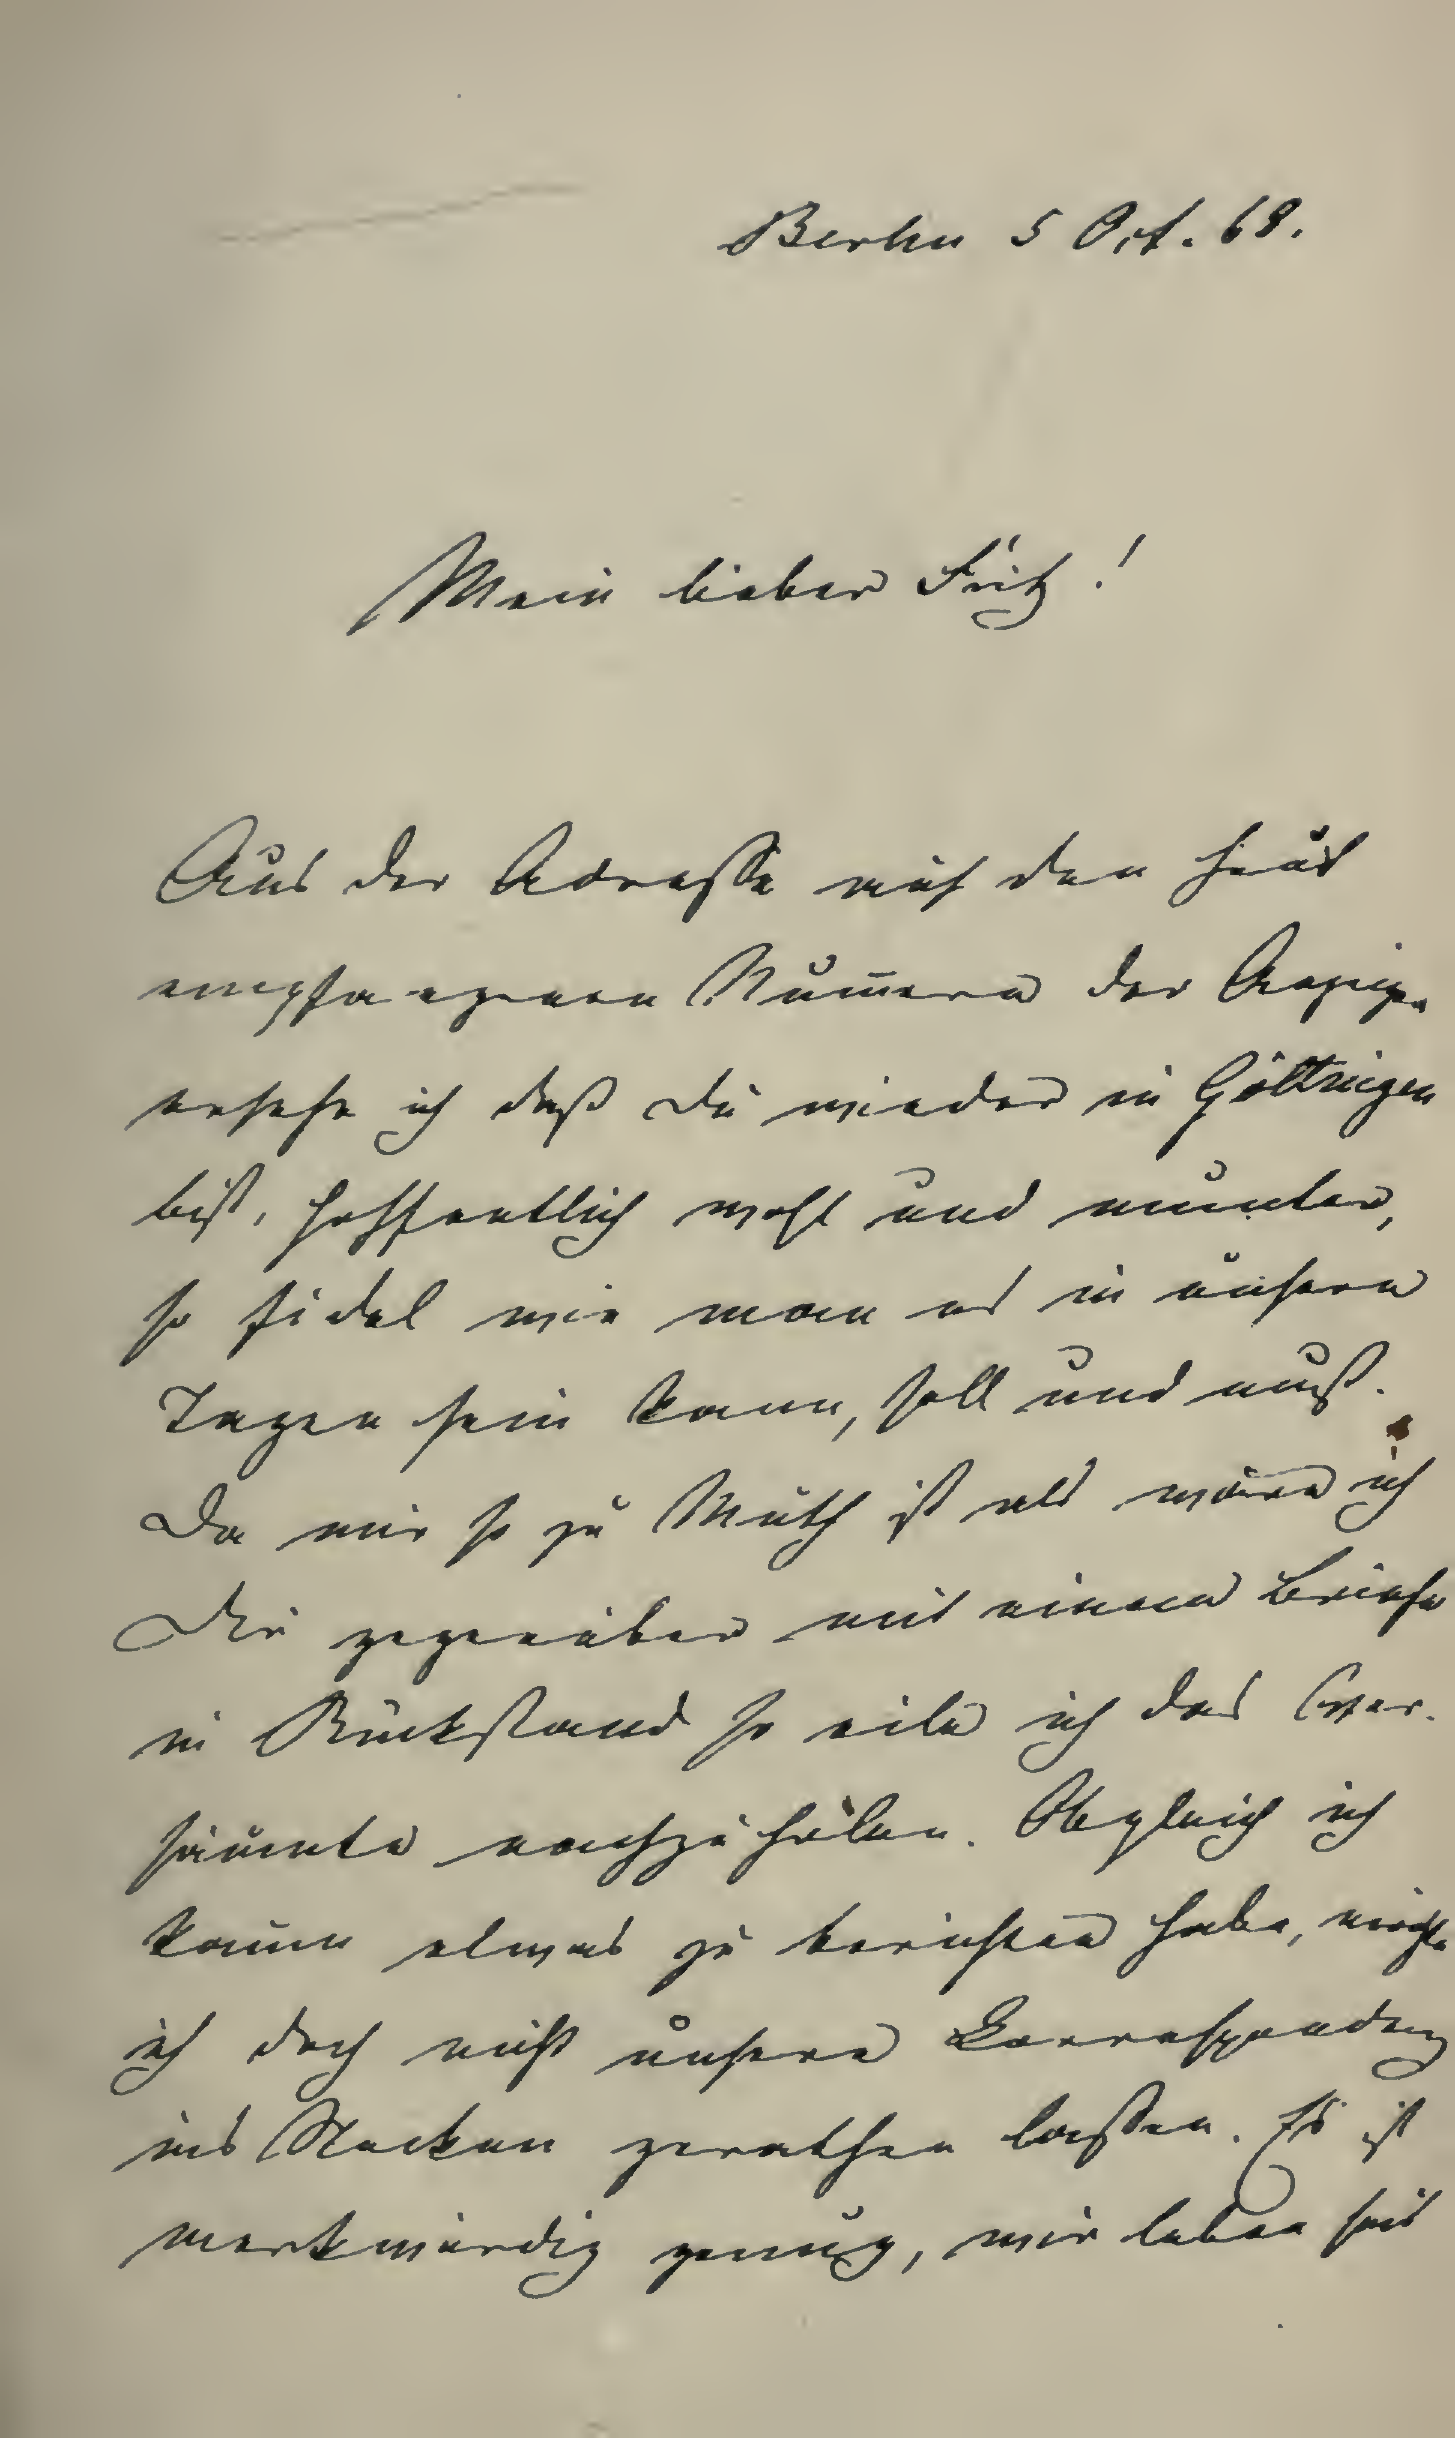 Berlin 5 Oct. 68.
Mein lieber Fritz!
Aus der Adresse auf den heut
empfangenen Num̄ern der Anzeigen
ersehe ich daß Du wieder in Göttingen
bist, hoffentlich wohl und munter,
so fidel wie man es in unsern
Tagen sein kann, soll und muß.
Da mir so zu Muth ist als wäre ich
Dir gegenüber mit einem Briefe
in Rückstand so eile ich das Ver-
säumte nachzuholen. Obgleich ich
kaum etwas zu berichten habe, möchte
ich doch nicht unsere Correspondenz
ins Stocken gerathen lassen. Es ist
merkwürdig genug, wir leben seit